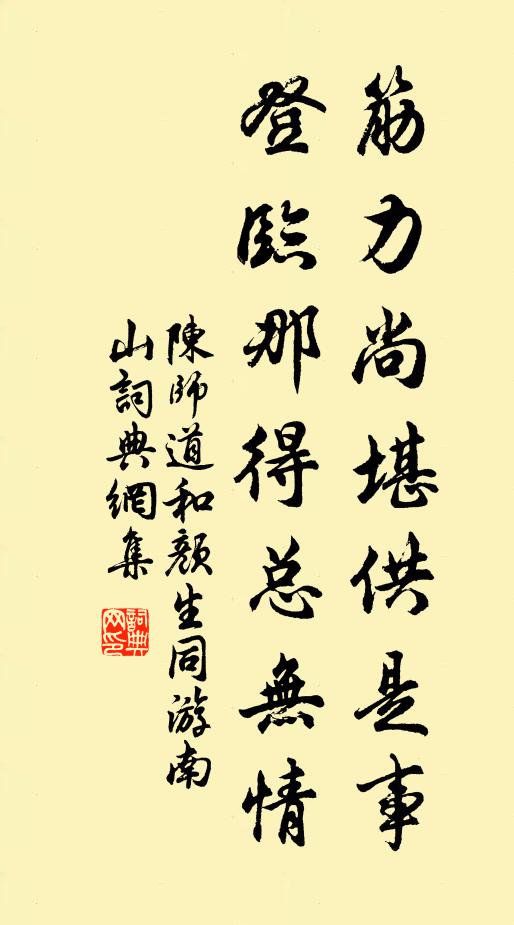 筋力尚堪供是事
登臨那得总無情
陳師道和顏生同游南
山詞典網集
詞典
网印